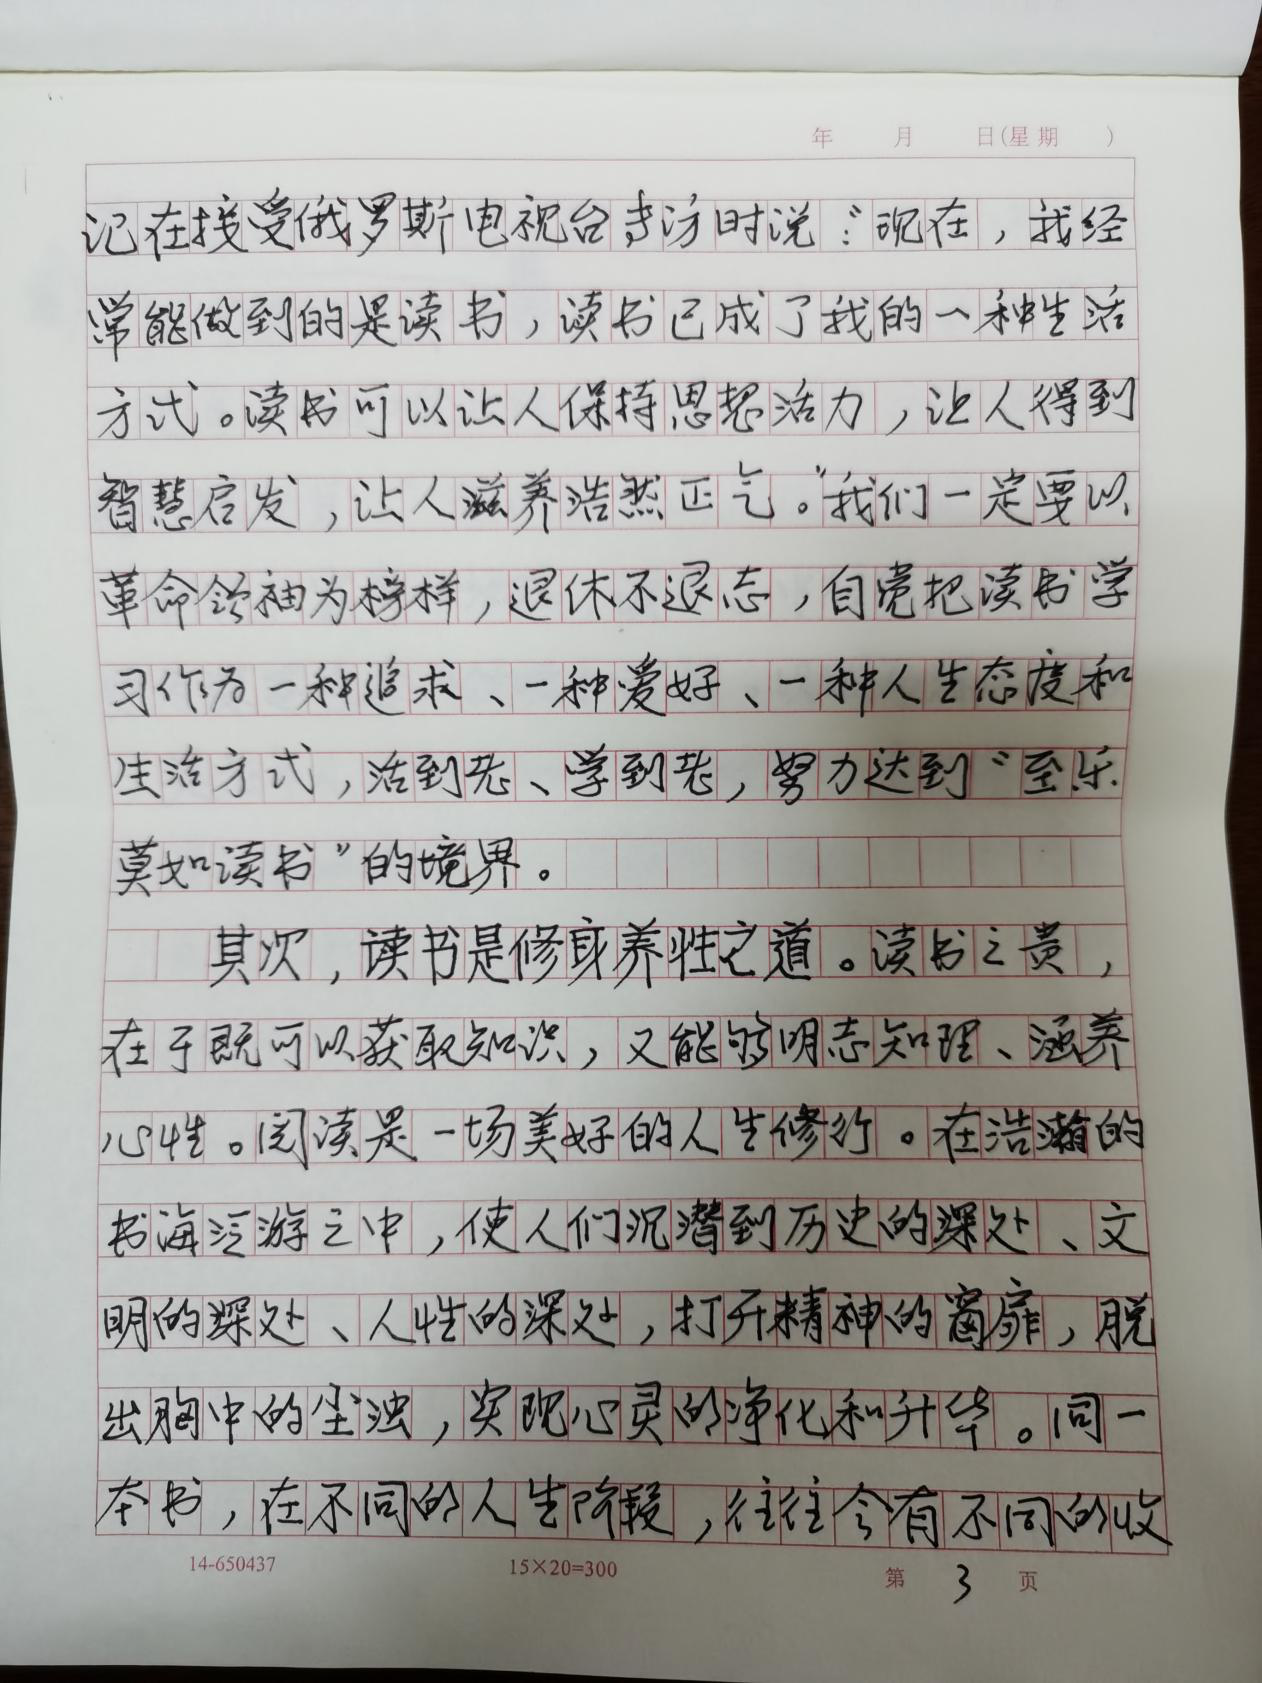 年 月 日(星期 )
记在接受俄罗斯电视台专访时说：“现在，我经
常能做到的是读书，读书已成了我的一种生活
方式。读书可以让人保持思想活力，让人得到
智慧启发，让人滋养浩然正气。”我们一定要以
革命领袖为榜样，退休不退志，自觉把读书学
习作为一种追求、一种爱好、一种人生态度和
生活方式，活到老、学到老，努力达到“至乐
莫如读书”的境界。
其次，读书是修身养性之道。读书之贵，
在于既可以获取知识，又能够明志知理、涵养
心性。阅读是一场美好的人生修行。在浩瀚的
书海泛游之中，使人们沉潜到历史的深处、文
明的深处、人性的深处，打开精神的窗扉，脱
出胸中的尘浊，实现心灵的净化和升华。同一
本书，在不同的人生阶段，往往会有不同的收
14-650437 15×20=300 第 3 页